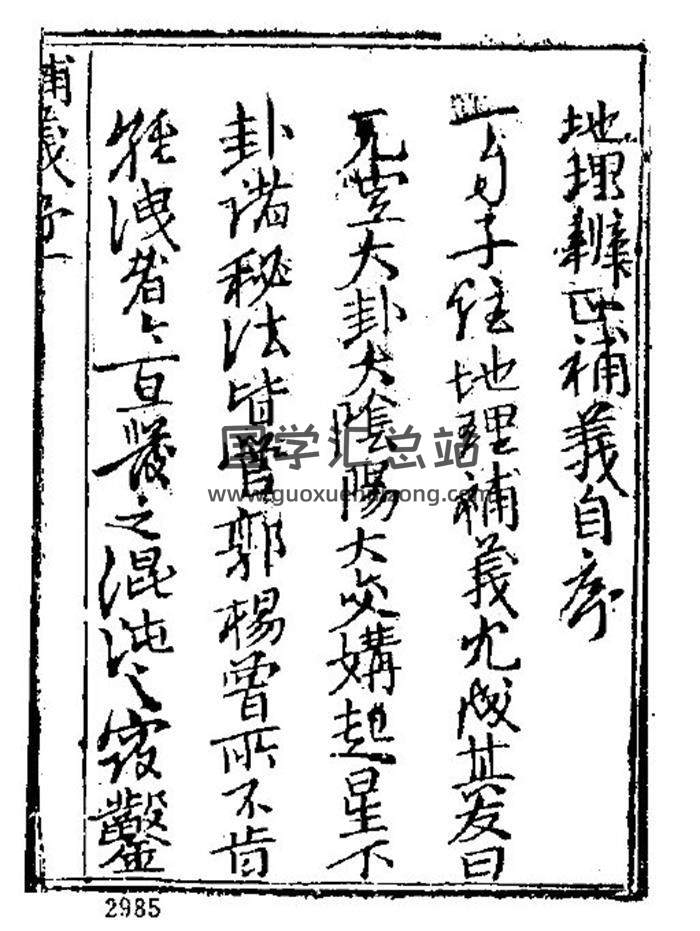 地理辨正補義自序
一勺子註地理補義尤成其友曰
元空大卦大陰陽大交媾起星下
卦諸秘法皆曾郭楊曾所不肯
輕洩者今直發之混沌之竅鑿
補義序一
国学汇总站
www.guoxuehuizong.com
2985